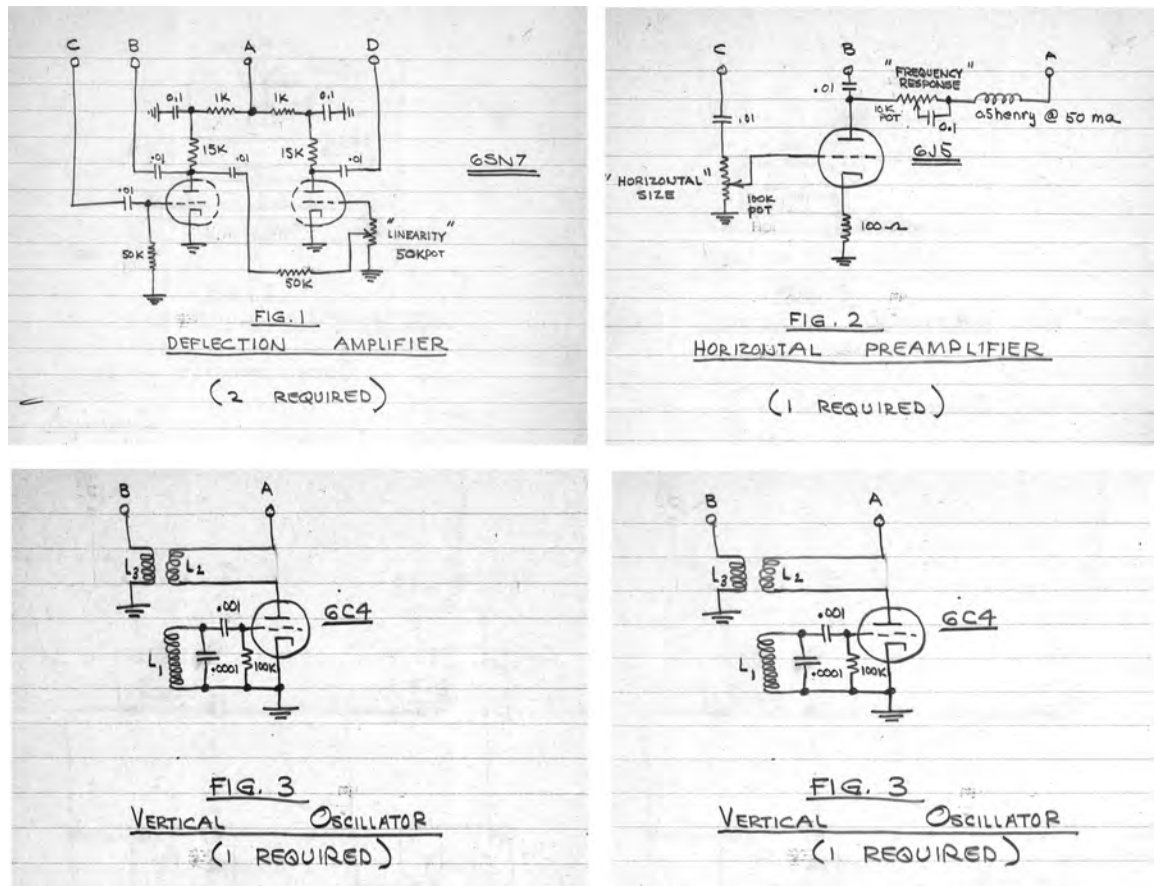 C B A D
0.1 1K 1K 0.1
15K 15K
.01 .01 .01
6SN7
.01
"LINEARITY"
50K POT
50K
50K
FIG. 1
DEFLECTION AMPLIFIER
(2 REQUIRED)
C B A
"FREQUENCY"
RESPONSE
.01
10K
POT
0.1
.01
6J5
"HORIZONTAL"
SIZE
100K
POT
100Ω
FIG. 2
HORIZONTAL PREAMPLIFIER
(1 REQUIRED)
B A
L3 L2
.001
6C4
L1
.0001
100K
FIG. 3
VERTICAL OSCILLATOR
(1 REQUIRED)
B A
L3 L2
.001
6C4
L1
.0001
100K
FIG. 3
VERTICAL OSCILLATOR
(1 REQUIRED)